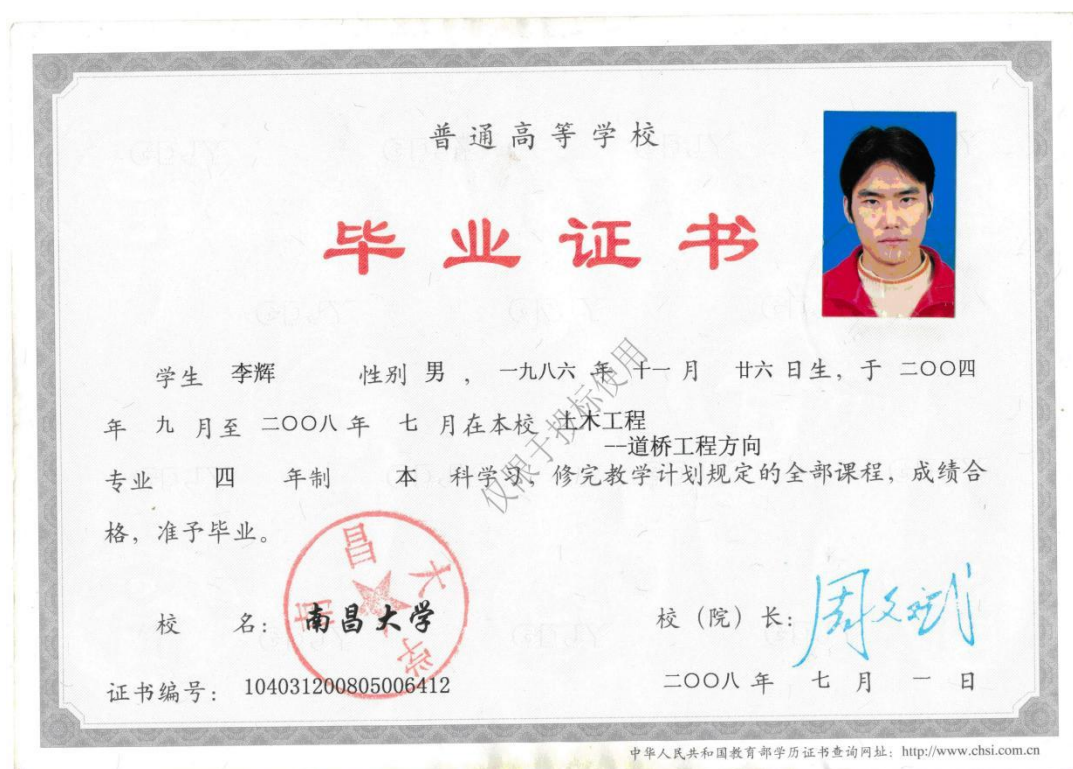 普通高等学校
毕业证书
学生 李辉 性别 男 ， 一九八六 年 十一 月 廿六 日生，于 二〇〇四
年 九 月至 二〇〇八 年 七 月在本校 土木工程
--道桥工程方向
专业 四 年制 本 科学习，修完教学计划规定的全部课程，成绩合
格，准予毕业。
仅限于投标使用
南昌大学
校 名：南昌大学
校（院）长：周文斌
证书编号：104031200805006412
二〇〇八 年 七 月 一 日
中华人民共和国教育部学历证书查询网址：http://www.chsi.com.cn